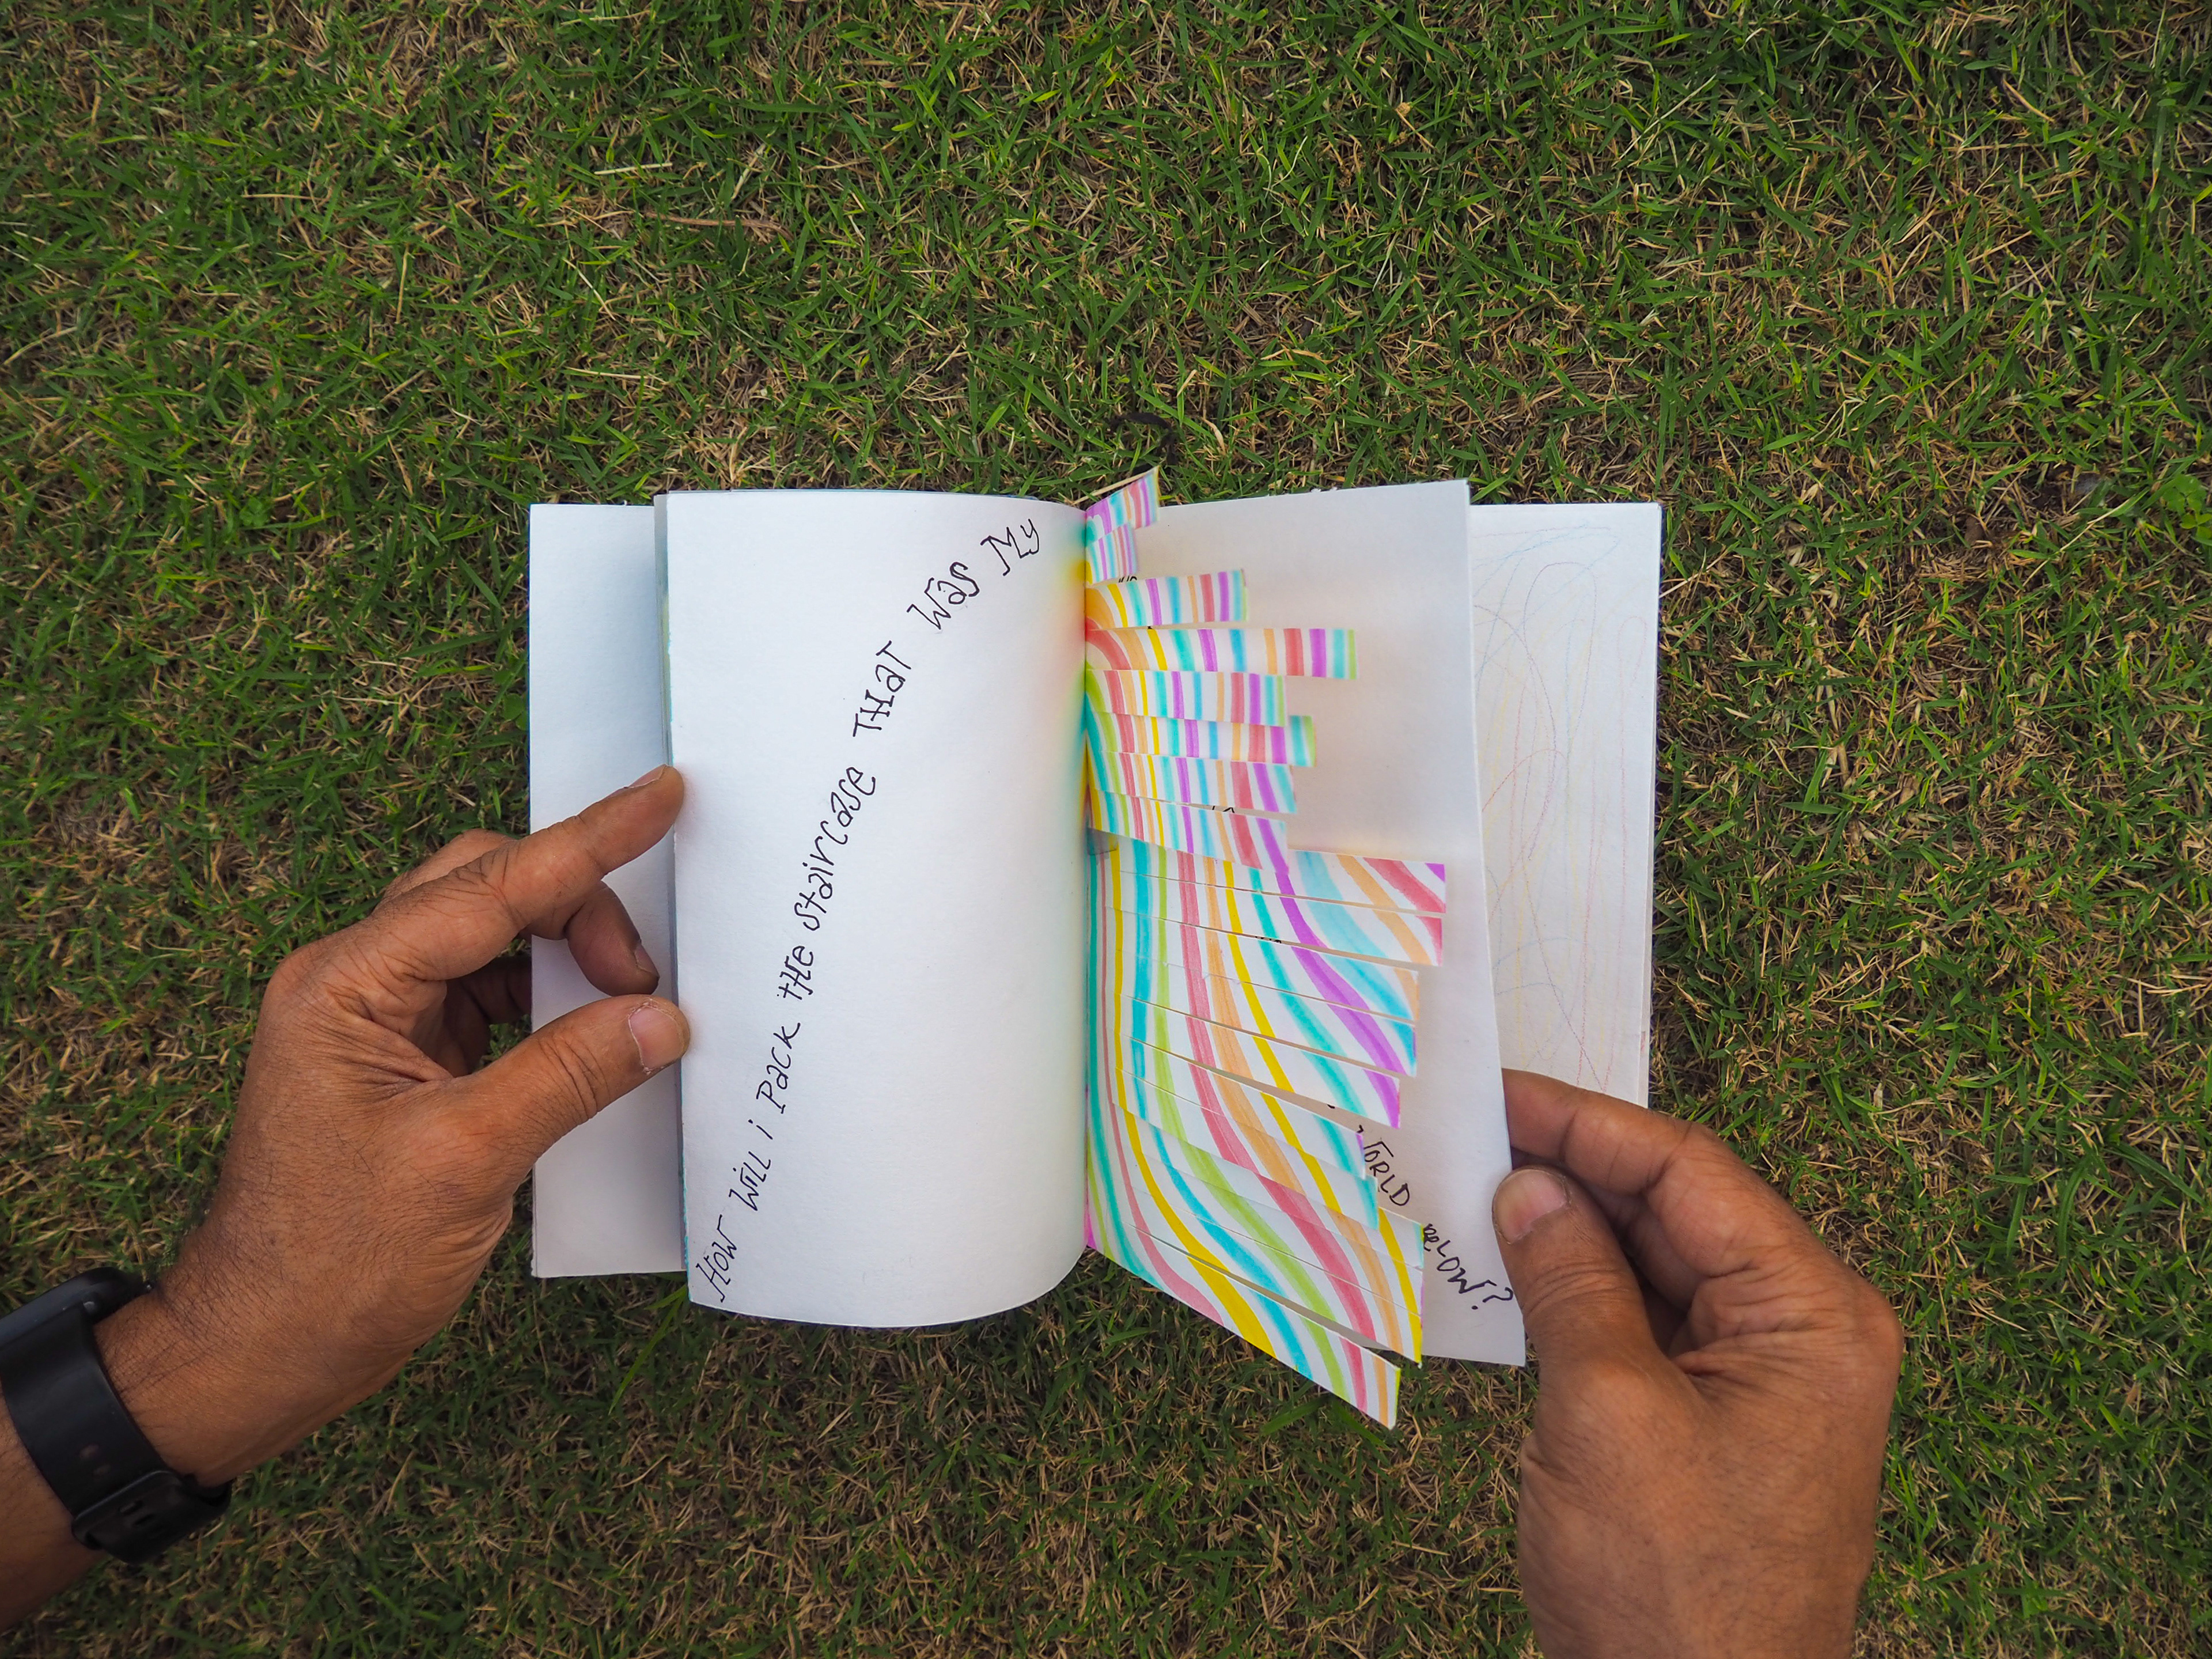 HOW WiLL i PACK tHE staircase THAT WAS My
WORLD BELOW?